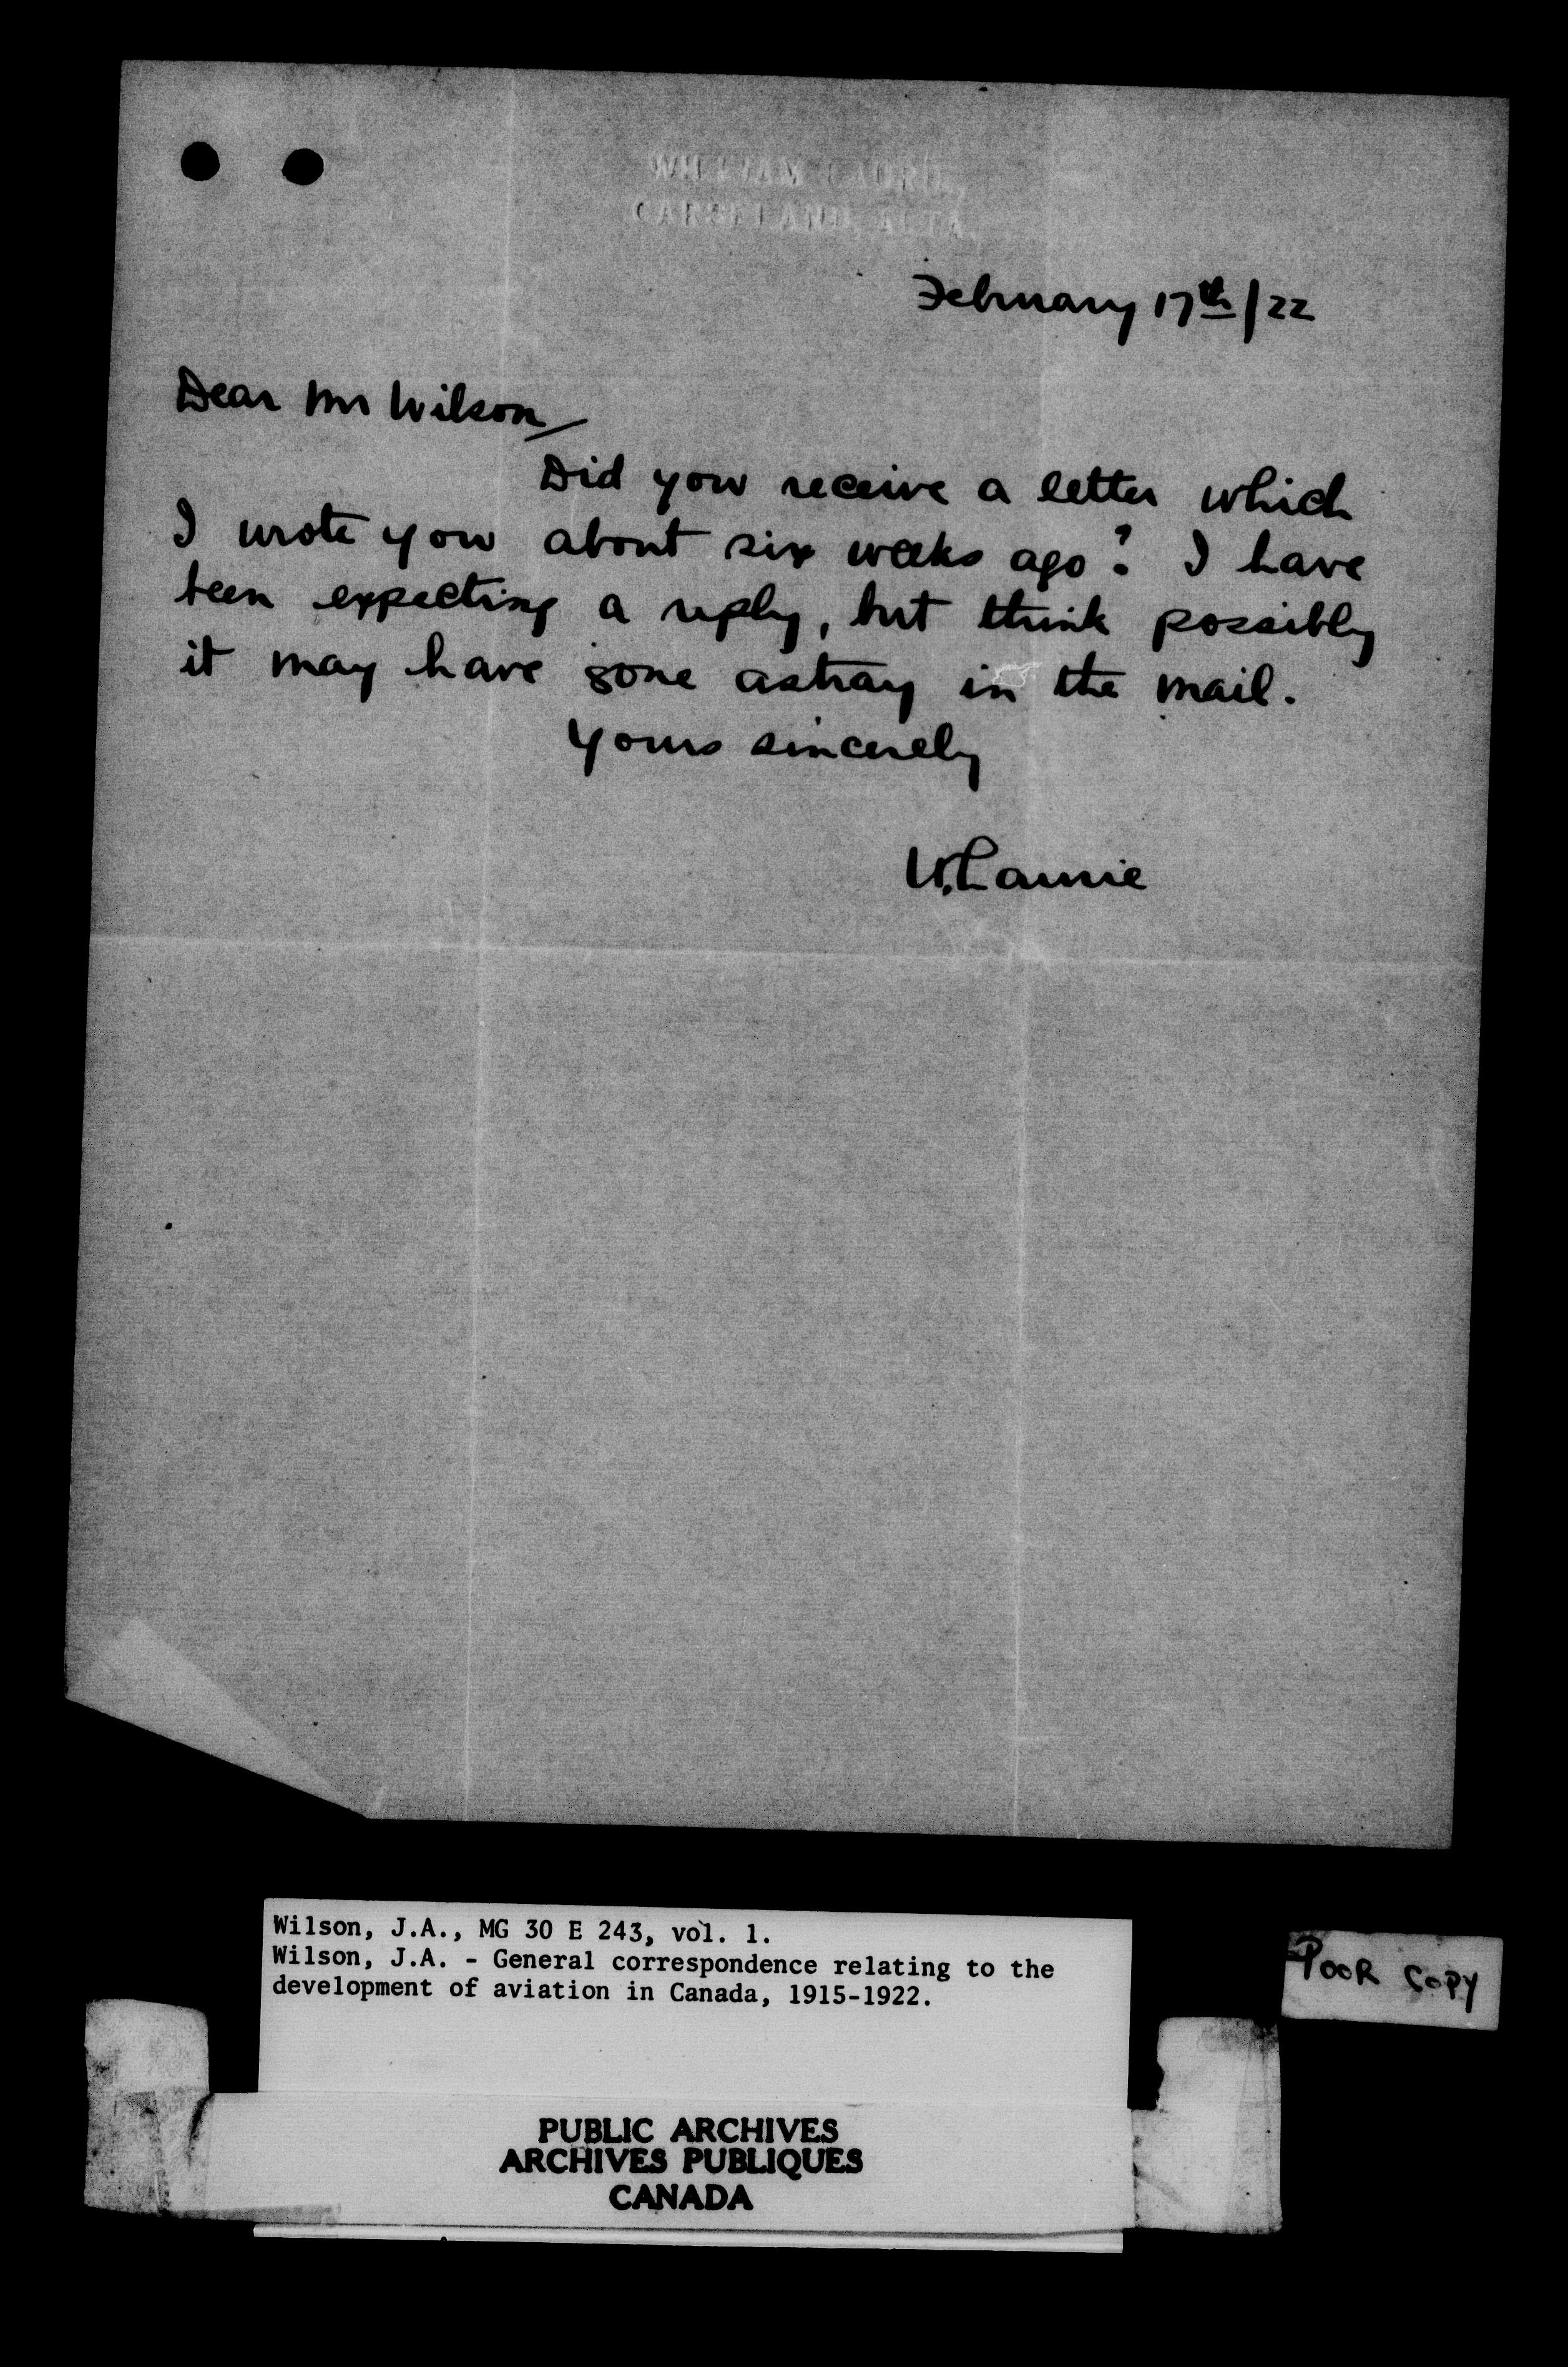 WILLIAM LAURIE,
CARSELAND, ALTA.
February 17th/22
Dear Mr Wilson
Did you receive a letter which
I wrote you about six weeks ago? I have
been expecting a reply, but think possibly
it may have gone astray in the mail.
Yours sincerely
W. Laurie
Wilson, J.A., MG 30 E 243, vol. 1.
Wilson, J.A. - General correspondence relating to the
development of aviation in Canada, 1915-1922.
POOR COPY
PUBLIC ARCHIVES
ARCHIVES PUBLIQUES
CANADA